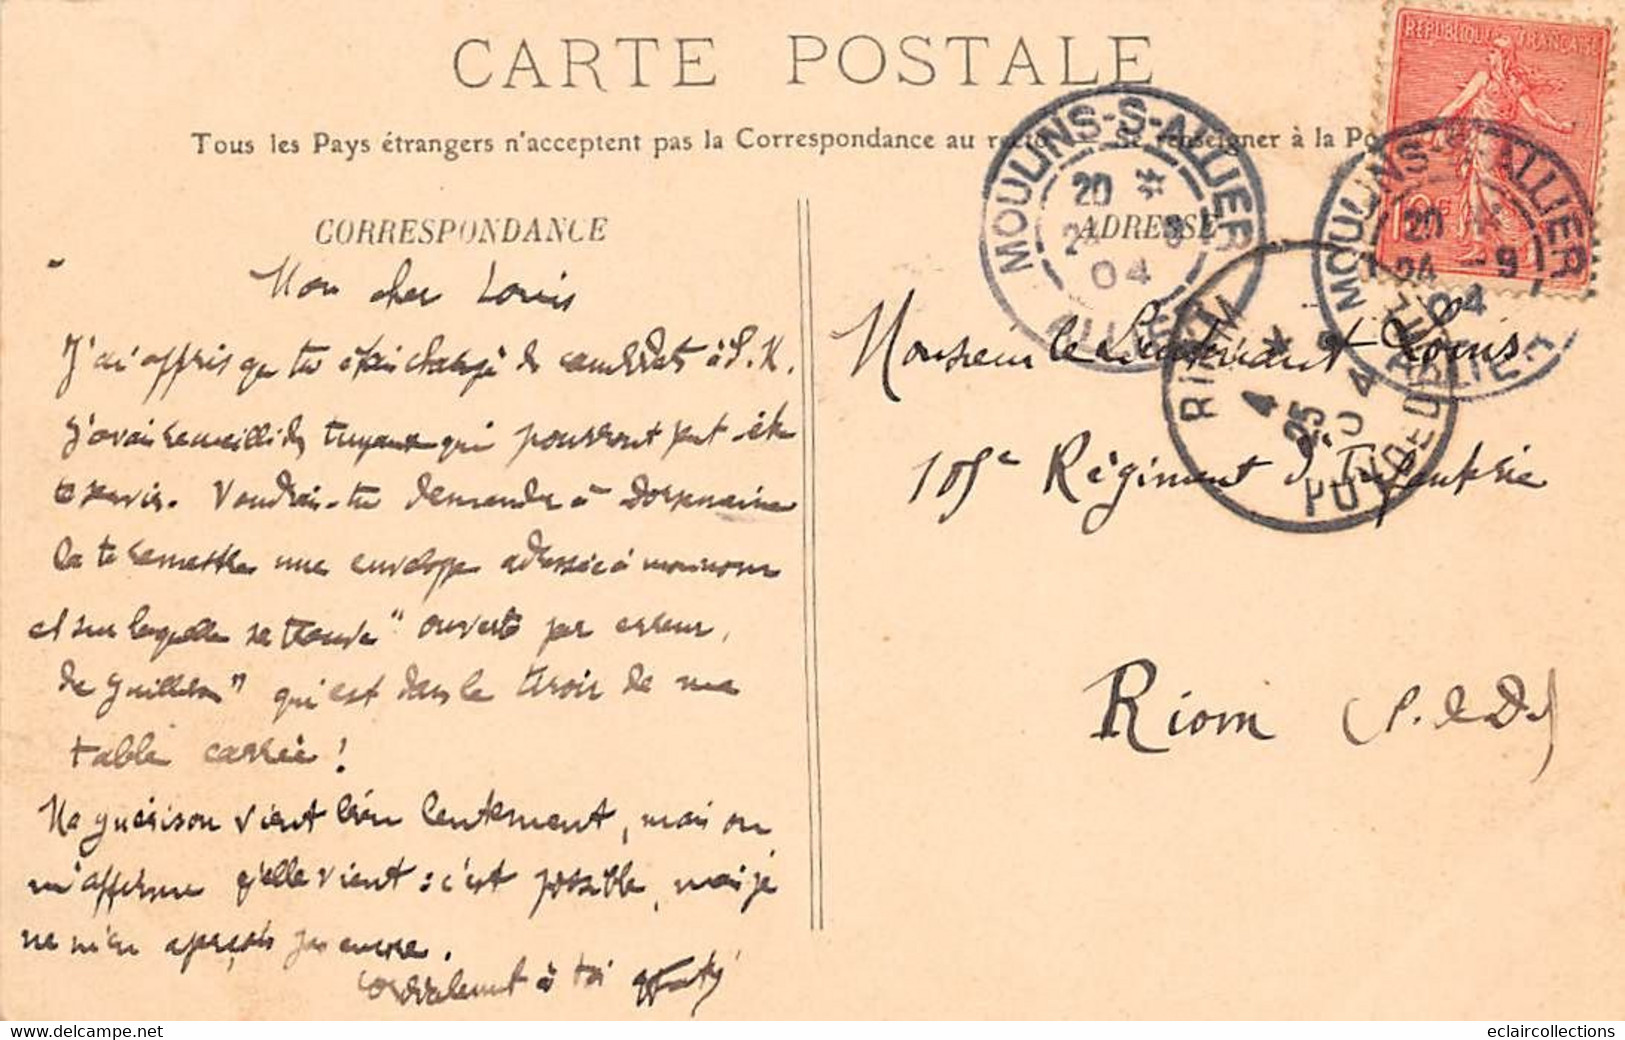 CARTE POSTALE
Tous les Pays étrangers n'acceptent pas la Correspondance au recto Se renseigner à la Po
REPUBLIQUE FRANÇAISE
MOULINS-S-ALLIER
20 *
24 9
04
ALLIER
MOULINS-S-ALLIER
20 *
24 -9
04
ALLIER
RIOM
4 *
25
04
PUY DE DOME
CORRESPONDANCE
ADRESSE
Mon cher Louis
J'ai appris que tu étais chargé de candidats à S. M.
J'avais recueilli des tuyaux qui pourront peut-être
te servir. Voudrais-tu demander à
de te remettre une enveloppe adressée à mon nom
et sur laquelle se trouve "ouverte par erreur,
de Guillelon" qui est dans le tiroir de ma
table carrée !
Ma guérison vient bien lentement, mais on
m'affirme qu'elle vient : c'est possible, mais je
ne m'en aperçois pas encore.
Cordialement à toi
Monsieur le Lieutenant Louis
105e Régiment d'Infanterie
Riom (P. de D.)
eclaircollections